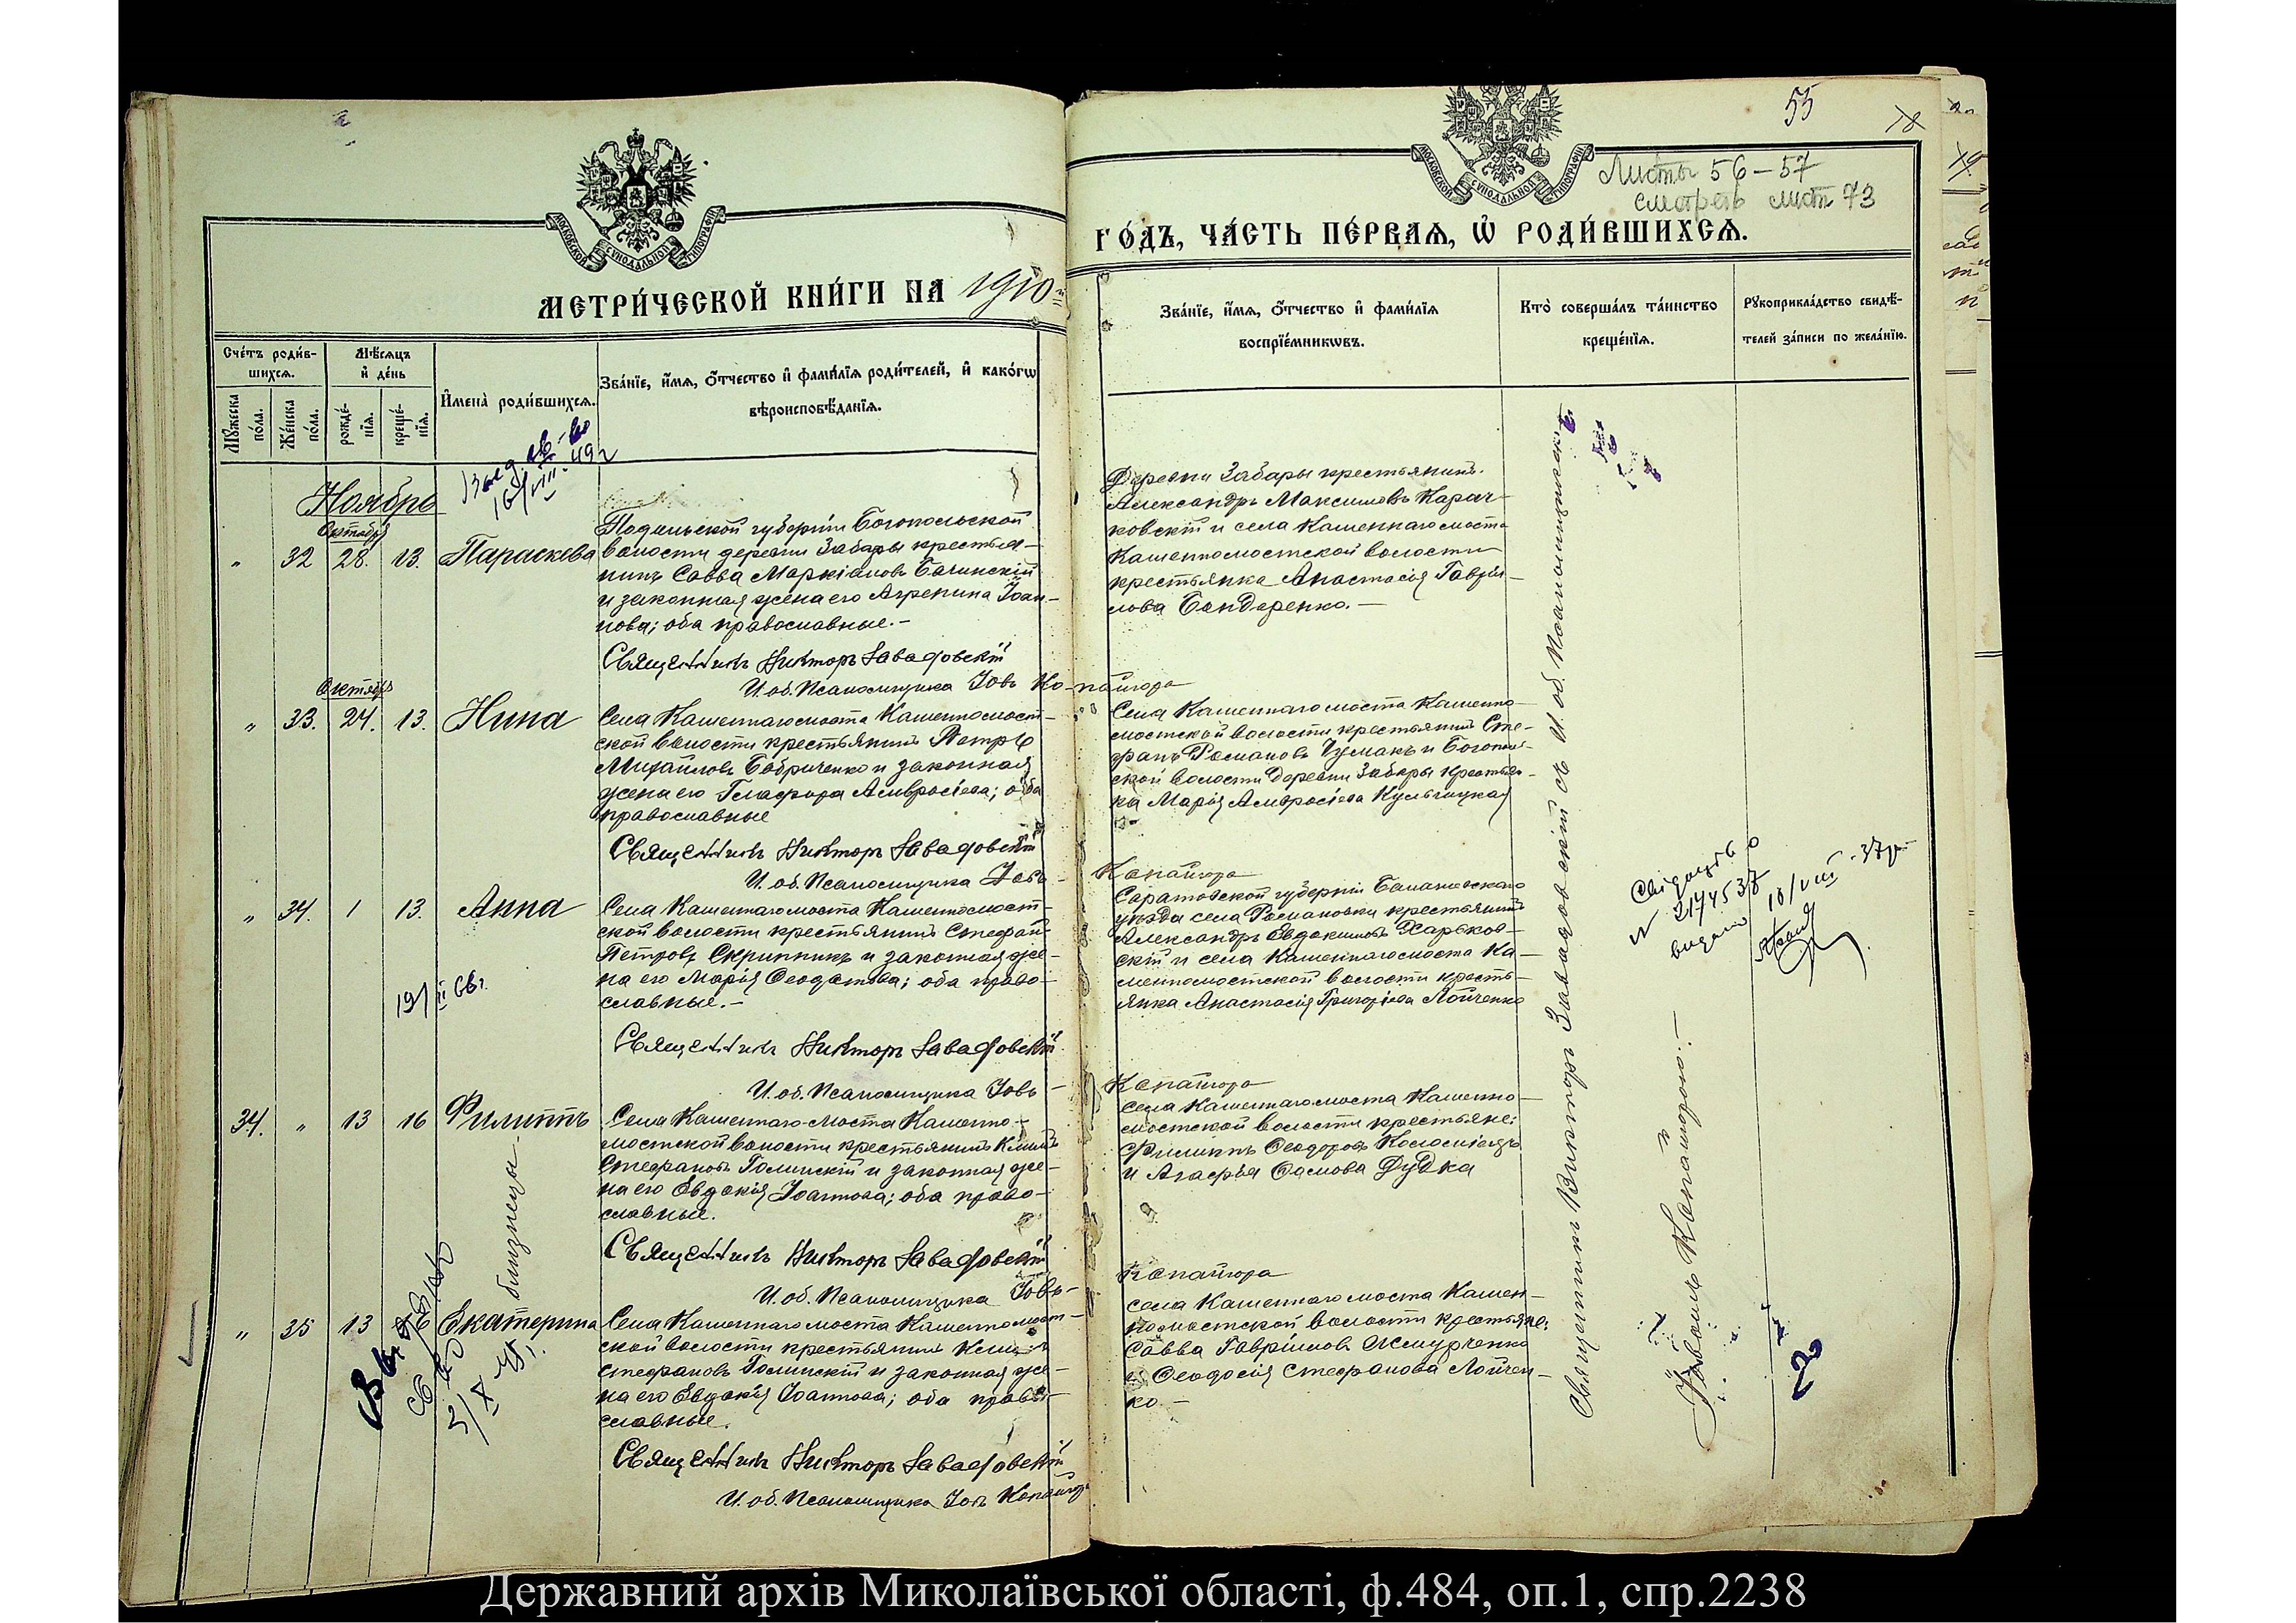 55
18
Листы 56-57
смотреть лист 73
МОСКОВСКОЙ СѴНОДАЛЬНОЙ ТИПОГРАФІИ
МОСКОВСКОЙ СѴНОДАЛЬНОЙ ТИПОГРАФІИ
МЕТРИ́ЧЕСКОЙ КНИ́ГИ НА 1910й
ГО́ДЪ, ЧА́СТЬ ПЕ́РВАѦ, Ѡ҆ РОДИ́ВШИХСѦ.
Сче́тъ роди́в-
шихсѧ.
Мꙋ́жеска по́ла.
Же́нска по́ла.
Мѣ́сѧцъ
и҆ де́нь
рожде́-
нїѧ.
креще́-
нїѧ.
И҆мена̀ роди́вшихсѧ.
Зва́нїе, и҆́мѧ, ѻ҆́тчество и҆ фами́лїѧ роди́телей, и҆ како́гѡ
вѣроисповѣ́данїѧ.
Зва́нїе, и҆́мѧ, ѻ҆́тчество и҆ фами́лїѧ
воспрїе́мникѡвъ.
Кто̀ соверша́лъ та́инство
креще́нїѧ.
Рꙋкоприкла́дство свидѣ́-
телей за́писи по жела́нїю.
16/VIII-49г
Ноябрь
Октября
" 32 28. 13. Параскева
Подольской губерніи Богопольской
волости деревни Забары крестья-
нинъ Савва Маркіановъ Бачинскій
и законная жена его Агрепина Іоан-
нова; оба православные.-
Священникъ Викторъ Завадовскій
И. об. Псаломщика Іовъ Копайгора
Деревни Забары крестьянинъ
Александръ Максимовъ Карач-
ковскій и села Каменнаго моста
Каменномостской волости
крестьянка Анастасія Гаврі-
лова Бондаренко.-
Октября
" 33. 24. 13. Нина
Села Каменнаго моста Каменномост-
ской волости крестьянинъ Петръ
Михайловъ Бобриченко и законная
жена его Гликерія Амвросіева; оба
православные
Священникъ Викторъ Завадовскій
И. об. Псаломщика Іовъ Копайгора
Села Каменнаго моста Каменно-
мостской волости крестьянинъ Сте-
фанъ Романовъ Чумакъ и Богополь-
ской волости деревни Забары крестьян-
ка Марія Амвросіева Кульчицкая
" 34. 1 13. Анна
Села Каменнаго моста Каменномост-
ской волости крестьянинъ Стефанъ
Петровъ Скрипникъ и законная же-
на его Марія Феодотова; оба право-
славные.-
19/II 66г.
Священникъ Викторъ Завадовскій
И. об. Псаломщика Іовъ Копайгора
Саратовской губерніи Балашовскаго
уѣзда села Романовки крестьянинъ
Александръ Евдокимовъ Харьков-
скій и села Каменнаго моста Ка-
менномостской волости кресть-
янка Анастасія Григоріева Лойченко
Свідоцтво
N 2174537
видано 10/VIII-37р.
34. " 13 16 Филиппъ
близнецы
Села Каменнаго-Моста Каменно-
мостской волости крестьянинъ Климъ
Стефановъ Голинскій и законная же-
на его Евдокія Іоаннова; оба право-
славные.
Священникъ Викторъ Завадовскій
И. об. Псаломщика Іовъ Копайгора
Села Каменнаго моста Каменно-
мостской волости крестьяне:
Филиппъ Феодоровъ Коломіецъ
и Агафья Фомова Дудка
" 35 13 16 Екатерина
Села Каменнаго моста Каменномост-
ской волости крестьянинъ Климъ
Стефановъ Голинскій и законная же-
на его Евдокія Іоаннова; оба право-
славные.
Священникъ Викторъ Завадовскій
И. об. Псаломщика Іовъ Копайгора
села Каменнаго моста Камен-
номостской волости крестьяне:
Савва Гавріиловъ Жмурченко
и Феодосія Стефанова Лойчен-
ко.-
Священникъ Викторъ Завадовскій съ И. об. Псаломщика
Іовомъ Копайгорою.-
Державний архів Миколаївської області, ф.484, оп.1, спр.2238